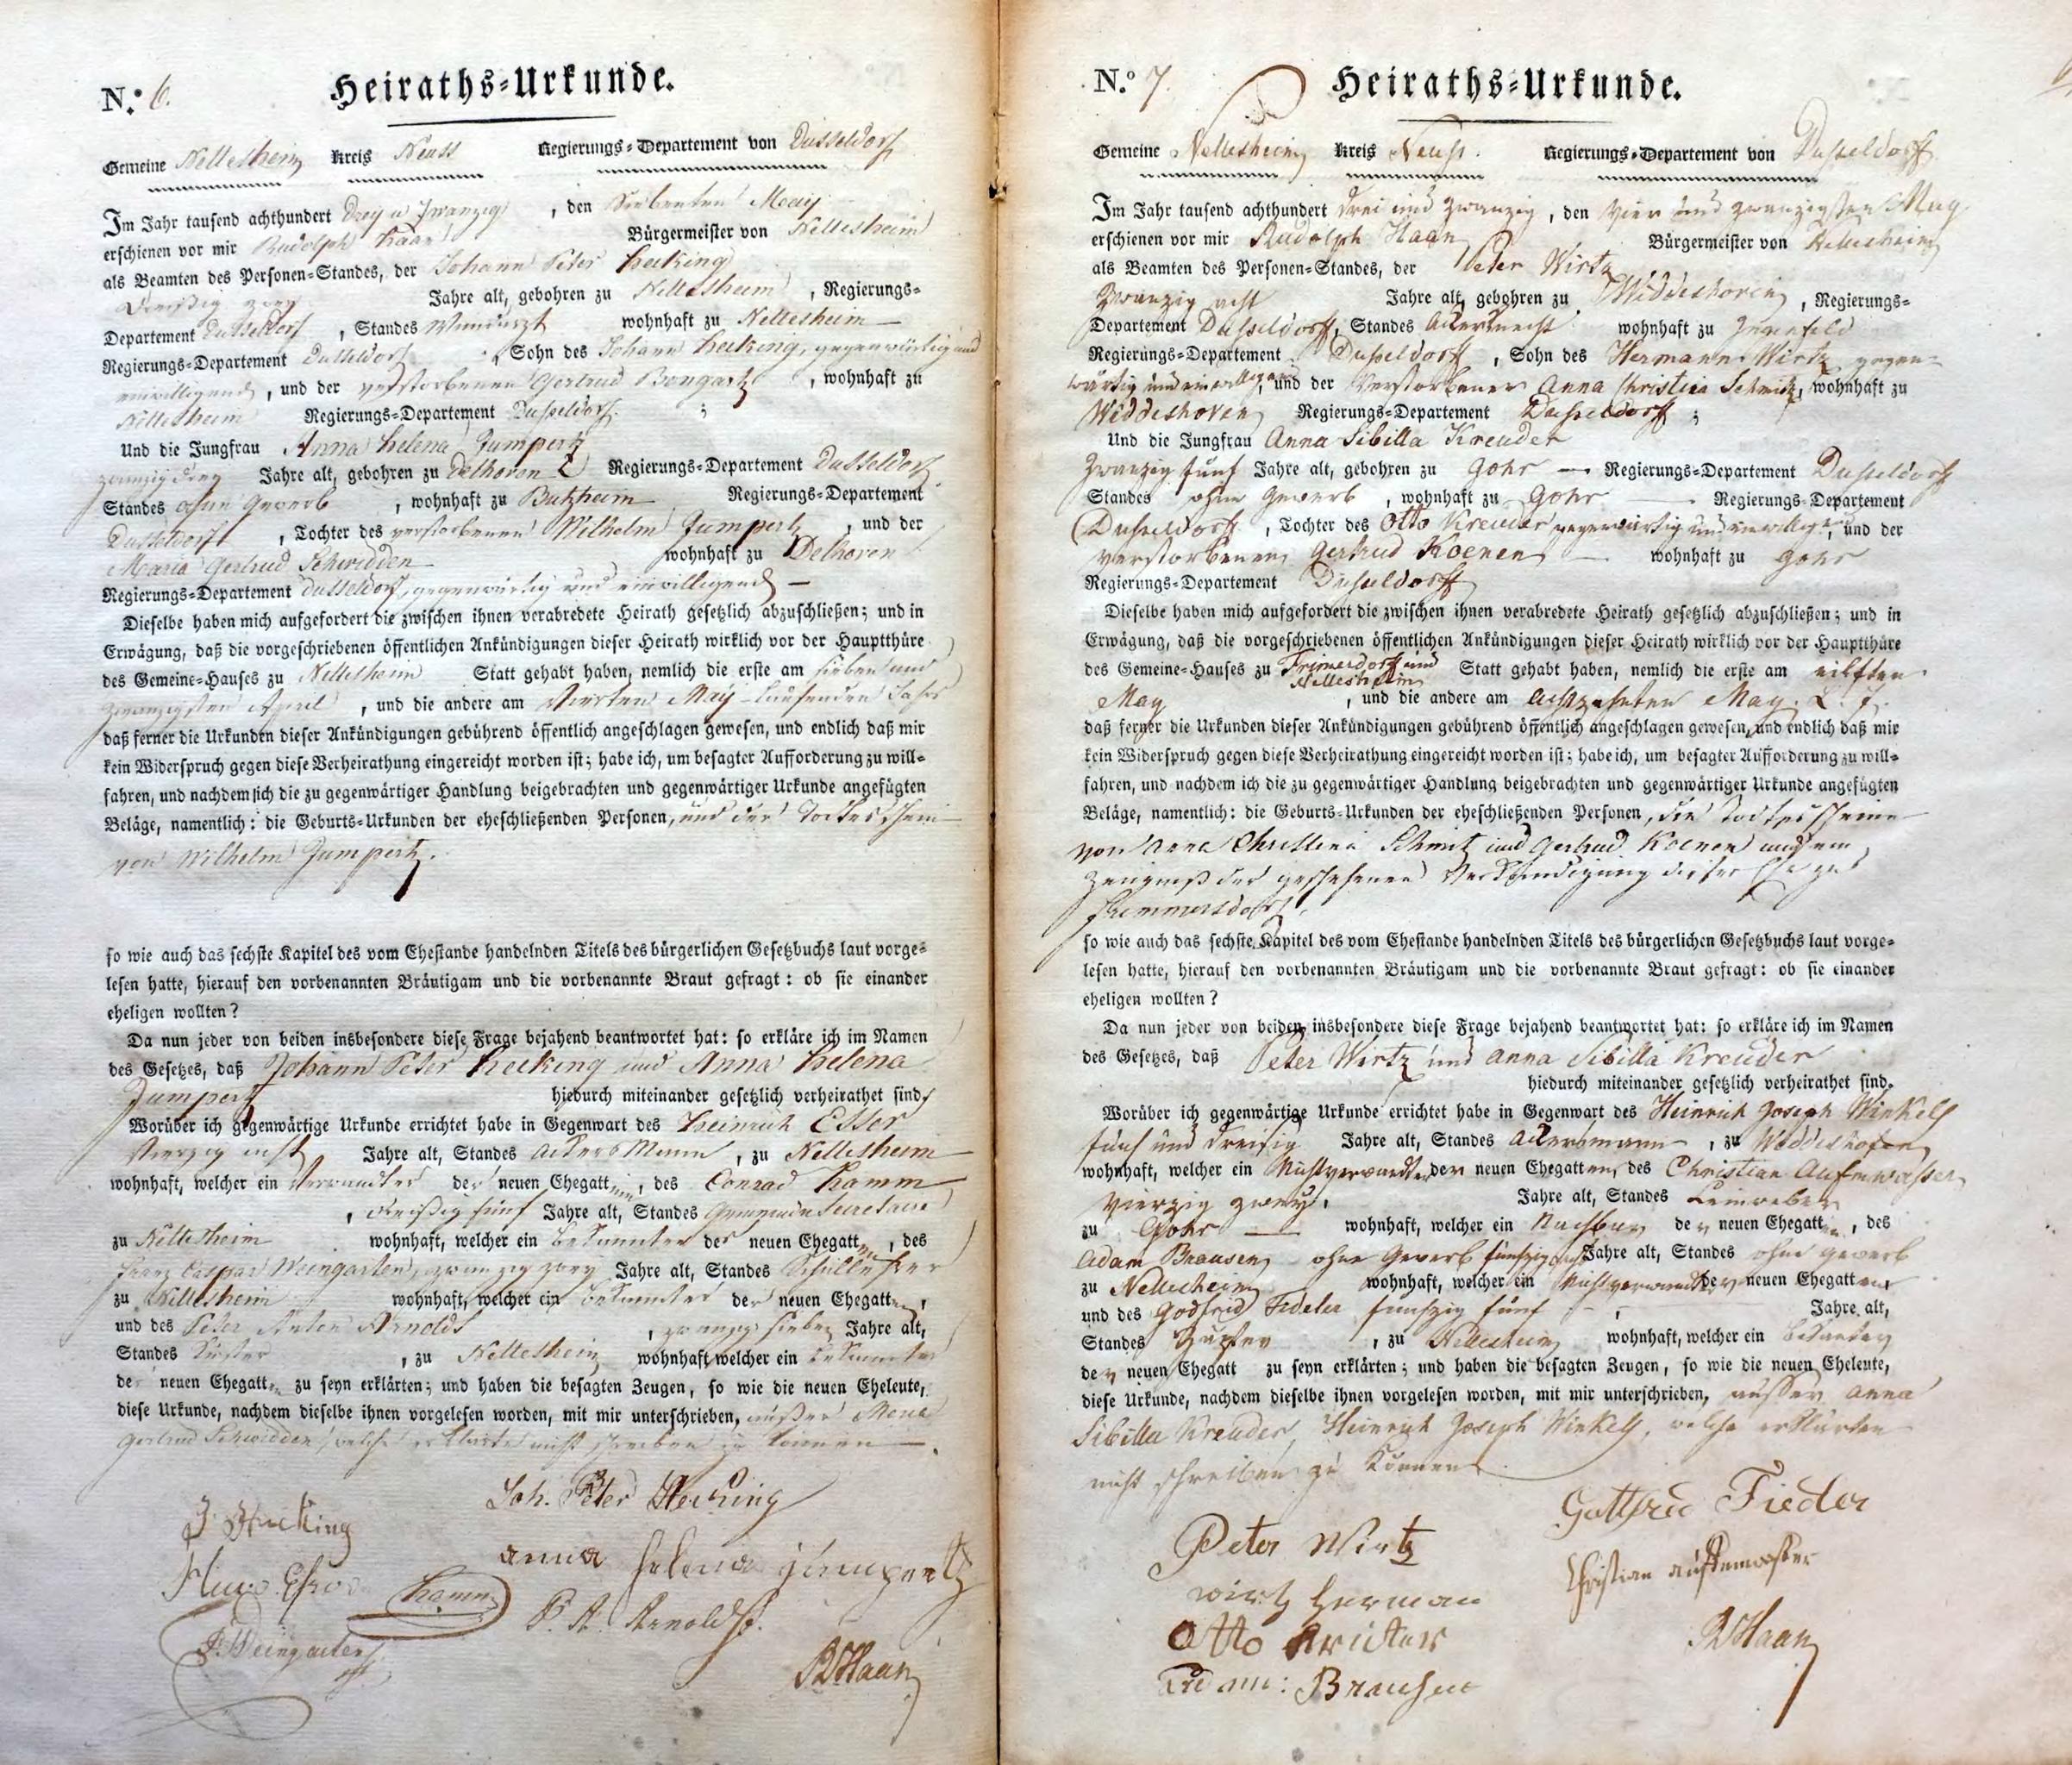 N.º 6. Heiraths-Urkunde.
Gemeine Nettesheim Kreis Neuss Regierungs-Departement von Dusseldorf
Im Jahr tausend achthundert drey u zwanzig, den Siebenten May
erschienen vor mir Rudolph Haan Bürgermeister von Nettesheim
als Beamten des Personen-Standes, der Johann Peter Hecking
dreißig zwey Jahre alt, gebohren zu Nettesheim, Regierungs-
Departement Dusseldorf, Standes Wundarzt wohnhaft zu Nettesheim
Regierungs-Departement Dusseldorf, Sohn des Johann Hecking, gegenwärtig und
einwilligend, und der verstorbenen Gertrud Bongartz, wohnhaft zu
Nettesheim Regierungs-Departement Dusseldorf;
Und die Jungfrau Anna Helena Jumpertz
zwanzig drey Jahre alt, gebohren zu Delhoven Regierungs-Departement Dusseldorf
Standes ohne Gewerb, wohnhaft zu Butzheim Regierungs-Departement
Dusseldorf, Tochter des verstorbenen Wilhelm Jumpertz, und der
Maria Gertrud Schwidden wohnhaft zu Delhoven
Regierungs-Departement Dusseldorf, gegenwärtig und einwilligend —
Dieselbe haben mich aufgefordert die zwischen ihnen verabredete Heirath gesetzlich abzuschließen; und in
Erwägung, daß die vorgeschriebenen öffentlichen Ankündigungen dieser Heirath wirklich vor der Hauptthüre
des Gemeine-Hauses zu Nettesheim Statt gehabt haben, nemlich die erste am sieben und
zwanzigsten April, und die andere am Vierten May laufenden Jahrs
daß ferner die Urkunden dieser Ankündigungen gebührend öffentlich angeschlagen gewesen, und endlich daß mir
kein Widerspruch gegen diese Verheirathung eingereicht worden ist; habe ich, um besagter Aufforderung zu will-
fahren, und nachdem ich die zu gegenwärtiger Handlung beigebrachten und gegenwärtiger Urkunde angefügten
Beläge, namentlich: die Geburts-Urkunden der eheschließenden Personen, und der Todtesschein
von Wilhelm Jumpertz.
so wie auch das sechste Kapitel des vom Ehestande handelnden Titels des bürgerlichen Gesetzbuchs laut vorge-
lesen hatte, hierauf den vorbenannten Bräutigam und die vorbenannte Braut gefragt: ob sie einander
eheligen wollten?
Da nun jeder von beiden insbesondere diese Frage bejahend beantwortet hat: so erkläre ich im Namen
des Gesetzes, daß Johann Peter Hecking und Anna Helena
Jumpertz hiedurch miteinander gesetzlich verheirathet sind.
Worüber ich gegenwärtige Urkunde errichtet habe in Gegenwart des Heinrich Esser
Vierzig acht Jahre alt, Standes Ackersmann, zu Nettesheim
wohnhaft, welcher ein Verwandter der neuen Ehegatten, des Conrad Hamm
, dreißig fünf Jahre alt, Standes Gemeinde Secretaire
zu Nettesheim wohnhaft, welcher ein bekannter der neuen Ehegatten, des
Franz Caspar Weingarten, zwanzig zwey Jahre alt, Standes Schullehrer
zu Nettesheim wohnhaft, welcher ein bekannter der neuen Ehegatten,
und des Peter Anton Arnolds, zwanzig sieben Jahre alt,
Standes Küster, zu Nettesheim wohnhaft welcher ein bekannter
der neuen Ehegatten zu seyn erklärten; und haben die besagten Zeugen, so wie die neuen Eheleute,
diese Urkunde, nachdem dieselbe ihnen vorgelesen worden, mit mir unterschrieben, außer Maria
Gertrud Schwidden welche erklärte nicht schreiben zu können —.
Joh. Peter Hecking
J. Hecking
anna helena jumpertz
Hamm
P. A. Arnolds.
Weingarten
R Haan
N.º 7. Heiraths-Urkunde.
Gemeine Nettesheim Kreis Neuss. Regierungs-Departement von Dusseldorff
Im Jahr tausend achthundert drei und zwanzig, den vier und zwanzigsten May
erschienen vor mir Rudolph Haan Bürgermeister von Nettesheim
als Beamten des Personen-Standes, der Peter Wirtz
zwanzig acht Jahre alt, gebohren zu Widdeshoven, Regierungs-
Departement Dusseldorff, Standes Ackerknecht wohnhaft zu
Regierungs-Departement Dusseldorff, Sohn des Hermann Wirtz gegen-
wärtig und einwilligend, und der verstorbenen Anna Christina Schmitz, wohnhaft zu
Widdeshoven Regierungs-Departement Dusseldorff;
Und die Jungfrau Anna Sibilla Kreuder
zwanzig fünf Jahre alt, gebohren zu Gohr — Regierungs-Departement Dusseldorff
Standes ohne Gewerb, wohnhaft zu Gohr Regierungs-Departement
Dusseldorff, Tochter des Otto Kreuder gegenwärtig und einwillig., und der
verstorbenen Gertrud Koenen — wohnhaft zu Gohr
Regierungs-Departement Dusseldorff
Dieselbe haben mich aufgefordert die zwischen ihnen verabredete Heirath gesetzlich abzuschließen; und in
Erwägung, daß die vorgeschriebenen öffentlichen Ankündigungen dieser Heirath wirklich vor der Hauptthüre
des Gemeine-Hauses zu Frimersdorff und Nettesheim Statt gehabt haben, nemlich die erste am eilften
May, und die andere am achtzehnten May. L. J.
daß ferner die Urkunden dieser Ankündigungen gebührend öffentlich angeschlagen gewesen, und endlich daß mir
kein Widerspruch gegen diese Verheirathung eingereicht worden ist; habe ich, um besagter Aufforderung zu will-
fahren, und nachdem ich die zu gegenwärtiger Handlung beigebrachten und gegenwärtiger Urkunde angefügten
Beläge, namentlich: die Geburts-Urkunden der eheschließenden Personen, die Todtesscheine
von Anna Christina Schmitz und Gertrud Koenen und ein
Zeugniß der geschehenen Verkündigung dieser Ehe zu
Frimmersdorf.
so wie auch das sechste Kapitel des vom Ehestande handelnden Titels des bürgerlichen Gesetzbuchs laut vorge-
lesen hatte, hierauf den vorbenannten Bräutigam und die vorbenannte Braut gefragt: ob sie einander
eheligen wollten?
Da nun jeder von beiden insbesondere diese Frage bejahend beantwortet hat: so erkläre ich im Namen
des Gesetzes, daß Peter Wirtz und Anna Sibilla Kreuder
hiedurch miteinander gesetzlich verheirathet sind.
Worüber ich gegenwärtige Urkunde errichtet habe in Gegenwart des Heinrich Joseph Winkels
fünf und dreisig Jahre alt, Standes Ackersmann, zu Widdeshofen
wohnhaft, welcher ein Nichtverwandter der neuen Ehegatten, des Christian Aufemwasser
vierzig zwey, Jahre alt, Standes Leinweber
zu Gohr — wohnhaft, welcher ein Nachbar der neuen Ehegatten, des
Adam Brausen ohne Gewerb fünfzig Jahre alt, Standes ohne Gewerb
zu Nettesheim wohnhaft, welcher ein Nichtverwandter der neuen Ehegatten,
und des Godfrid Fideler fünfzig fünf, Jahre alt,
Standes, zu Nettesheim wohnhaft, welcher ein bekanter
der neuen Ehegatt zu seyn erklärten; und haben die besagten Zeugen, so wie die neuen Eheleute,
diese Urkunde, nachdem dieselbe ihnen vorgelesen worden, mit mir unterschrieben, ausser Anna
Sibilla Kreuder, Heinrich Joseph Winkels, welche erklärten
nicht schreiben zu können
Gottfried Fieder
Peter Wirtz
Christian aufemwasser
wirtz herman
Otto
R Haan
Adam: Brausen